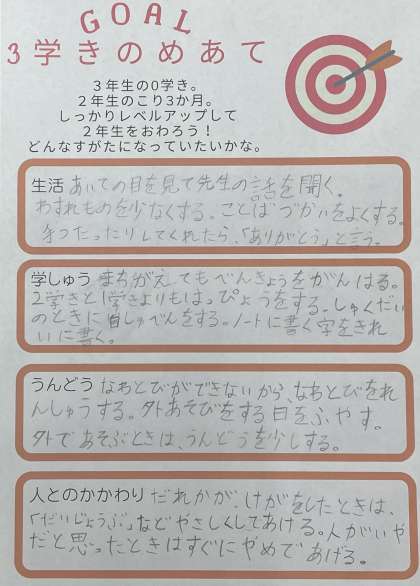 GOAL
3学きのめあて
3年生の0学き。
2年生のこり3か月。
しっかりレベルアップして
2年生をおわろう！
どんなすがたになっていたいかな。
生活 あいての目を見て先生の話を聞く。
わすれものを少なくする。ことばづかいをよくする。
手つだったりしてくれたら、「ありがとう」と言う。
学しゅう まちがえてもべんきょうをがんばる。
2学きと1学きよりもはっぴょうをする。しゅくだい
のときに自しゅべんをする。ノートに書く字をきれ
いに書く。
うんどう なわとびができないから、なわとびをれ
んしゅうする。外あそびをする日をふやす。
外であそぶときは、うんどうを少しする。
人とのかかわり だれかが、けがをしたときは、
「だいじょうぶ」などやさしくしてあげる。人がいや
だと思ったときはすぐにやめてあげる。